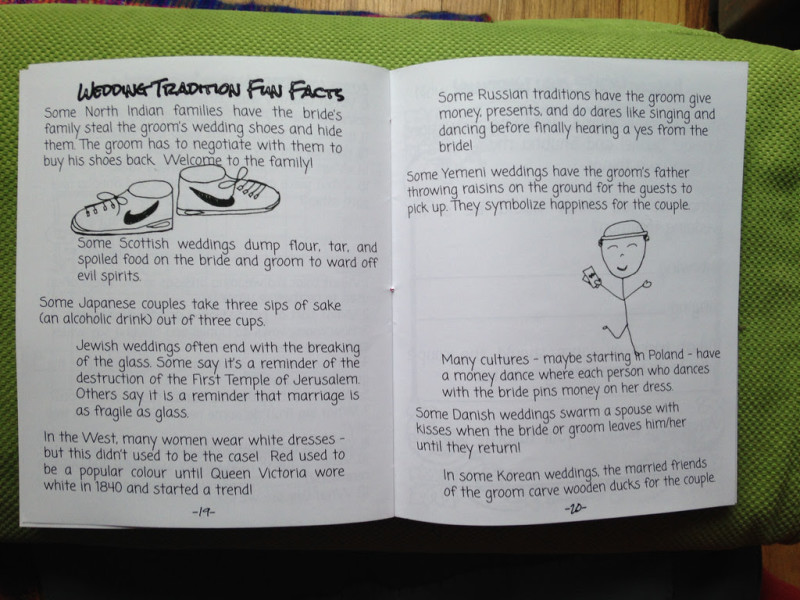 WEDDING TRADITION FUN FACTS
Some North Indian families have the bride's
family steal the groom's wedding shoes and hide
them. The groom has to negotiate with them to
buy his shoes back. Welcome to the family!
Some Scottish weddings dump flour, tar, and
spoiled food on the bride and groom to ward off
evil spirits.
Some Japanese couples take three sips of sake
(an alcoholic drink) out of three cups.
Jewish weddings often end with the breaking
of the glass. Some say it's a reminder of the
destruction of the First Temple of Jerusalem.
Others say it is a reminder that marriage is
as fragile as glass.
In the West, many women wear white dresses -
but this didn't used to be the case! Red used to
be a popular colour until Queen Victoria wore
white in 1840 and started a trend!
-19-
Some Russian traditions have the groom give
money, presents, and do dares like singing and
dancing before finally hearing a yes from the
bride!
Some Yemeni weddings have the groom's father
throwing raisins on the ground for the guests to
pick up. They symbolize happiness for the couple.
Many cultures - maybe starting in Poland - have
a money dance where each person who dances
with the bride pins money on her dress.
Some Danish weddings swarm a spouse with
kisses when the bride or groom leaves him/her
until they return!
In some Korean weddings, the married friends
of the groom carve wooden ducks for the couple.
-20-